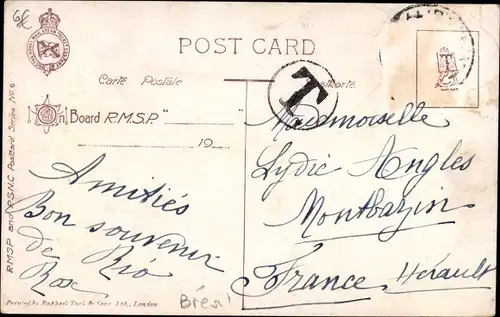 6€
POST CARD
Carte Postale
Postkarte
On Board R.M.S.P. "_______"
19
T
R.M.S.P and P.S.N.C Postcard Series No 6
Amitiés
Bon souvenir
de Rio
Rose
Mademoiselle
Lydie Angles
Montbazin
France Hérault
Brésil
Printed by Raphael Tuck & Sons Ltd., London